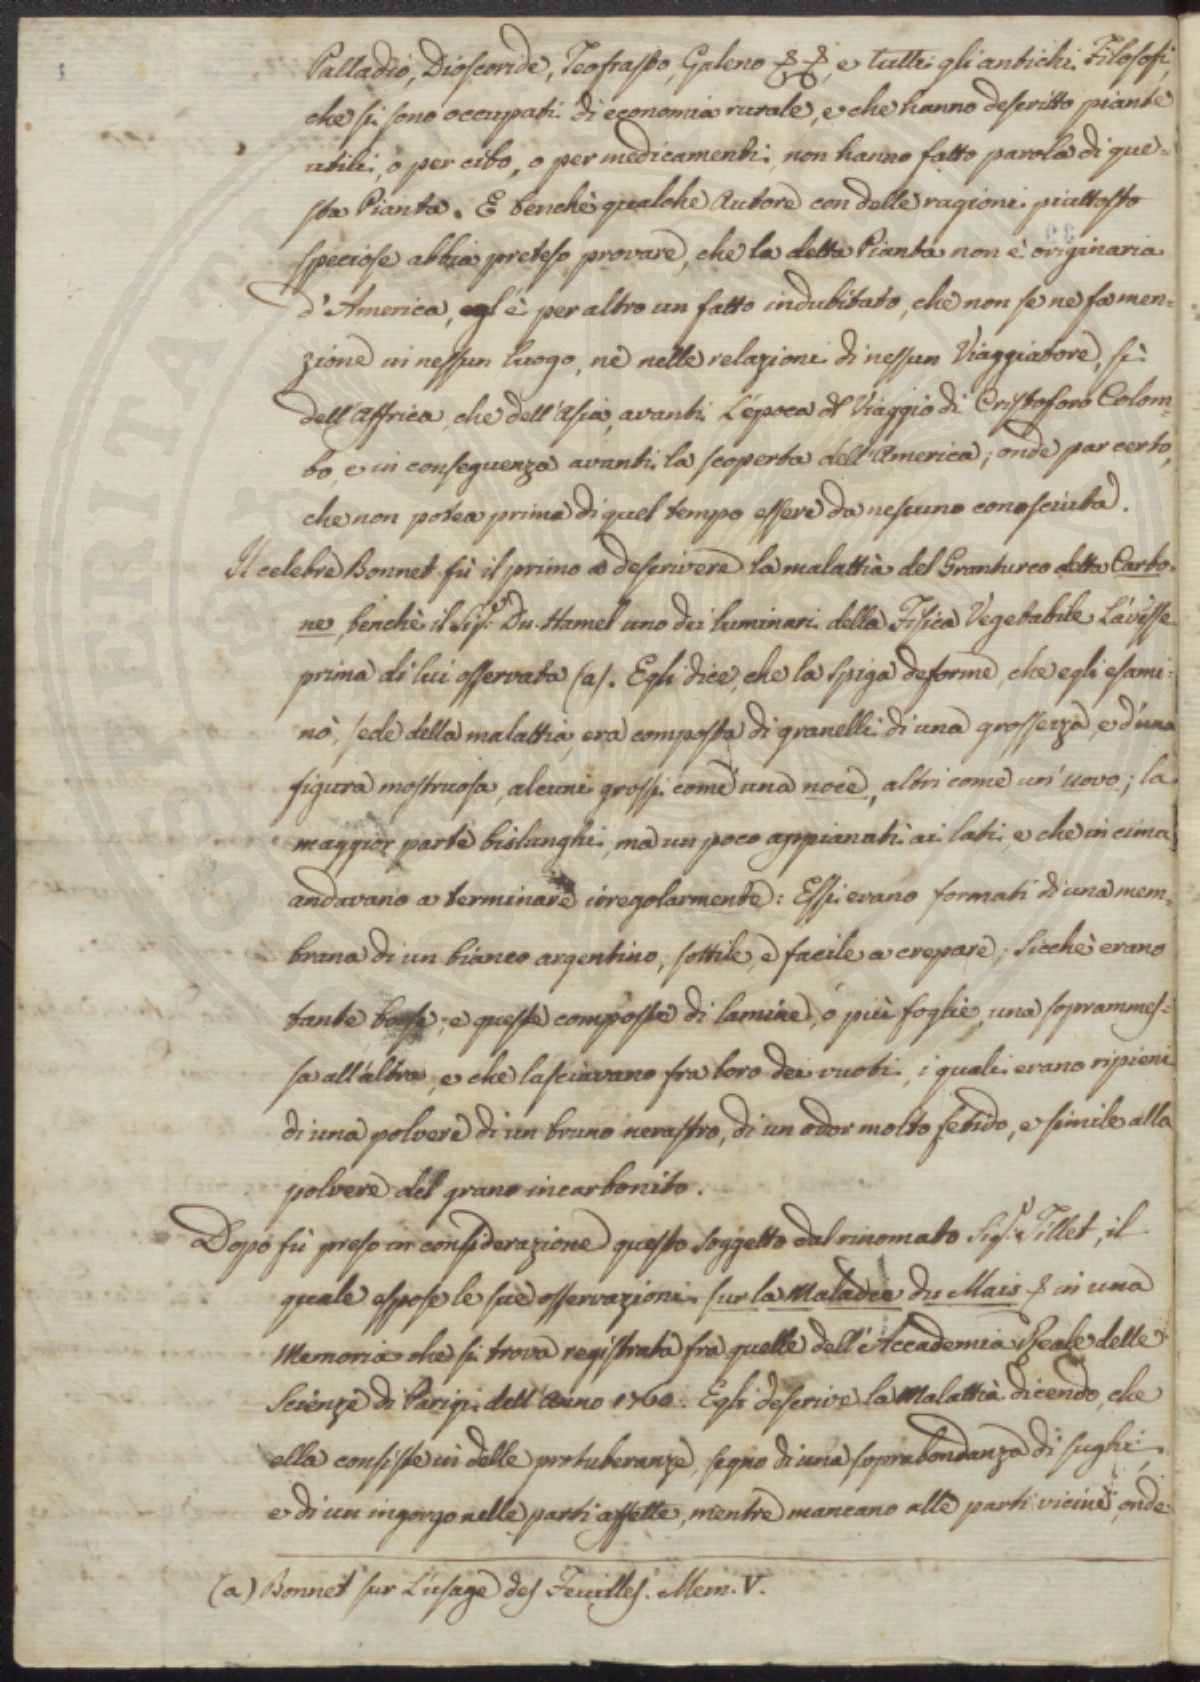 Palladio, Dioscoride, Teofrasto, Galeno &c &c, e tutti gli antichi Filosofi,
che si sono occupati di economia rurale, e che hanno descritto piante
utili, o per cibo, o per medicamenti, non hanno fatto parola di que-
sta Pianta. E benchè qualche Autore con delle ragioni piuttosto
speciose abbia preteso provare, che la detta Pianta non è originaria
d'America, egl'è per altro un fatto indubitato, che non se ne fa men-
zione in nessun luogo, nè nelle relazioni di nessun Viaggiatore, sì
dell'Affrica, che dell'Asia, avanti L'epoca del Viaggio di Cristoforo Colom-
bo, e in conseguenza avanti la scoperta dell'America; onde par certo,
che non potea prima di quel tempo essere da nessuno conosciuta.
Il celebre Bonnet fù il primo a descrivere la malattia del Granturco detta Carbo-
ne, benchè il Sig.r Du-Hamel uno dei luminari della Fisica Vegetabile L'avesse
prima di lui osservata (a). Egli dice, che la spiga deforme, che egli esami-
nò, sede della malattia, era composta di granelli di una grossezza, e d'una
figura mostruosa, alcuni grossi come una noce, altri come un'uovo; la
maggior parte bislunghi, ma un poco appianati ai lati e che in cima
andavano a terminare irregolarmente: Essi erano formati di una mem-
brana di un bianco argentino, sottile, e facile a crepare; Sicchè erano
tante borse; e queste composte di lamine, o più foglie, una soprammes-
sa all'altra, e che lasciavano fra loro dei vuoti, i quali erano ripieni
di una polvere di un bruno nerastro, di un odor molto fetido, e simile alla
polvere del grano incarbonito.
Dopo fù preso in considerazione questo soggetto dal rinomato Sig.r Tillet, il
quale espose le sue osservazioni sur la Maladie du Mais &c in una
Memoria che si trova registrata fra quelle dell'Accademia Reale delle
Scienze di Parigi dell'Anno 1760. Egli descrive la Malattia dicendo, che
ella consiste in delle protuberanze, segno di una soprabondanza di sughi,
e di un ingorgo nelle parti affette, mentre mancano alle parti vicine, onde
(a) Bonnet sur L'usage des Feuilles. Mem. V.